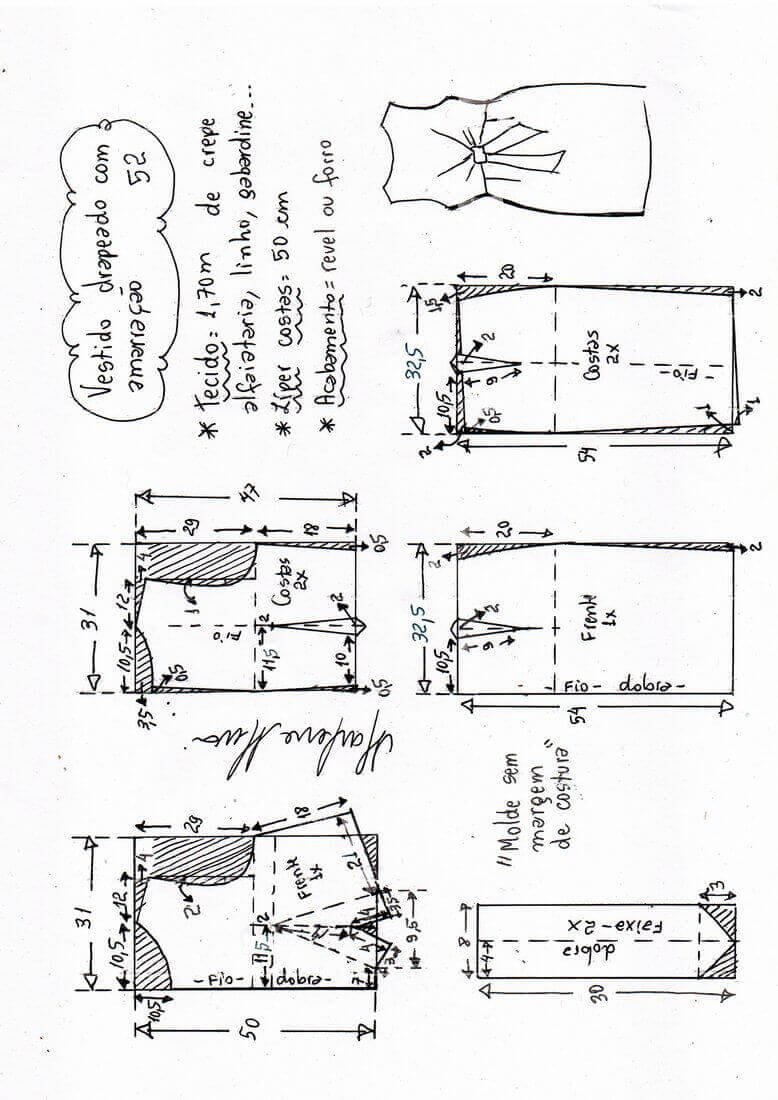 Vestido drapeado com
amarração 52
* Tecido = 1,70m de crepe
alfaiataria, linho, gabardine...
* Zíper costas = 50 cm
* Acabamento = revel ou forro
31
10,5
12
4
10,5
29
18
50
2
11,5
2
Frente
1x
21
- Fio - dobra -
7
9,5
3,5
4
4
3
31
10,5
12
4
3,5
0,5
1
29
18
47
Fio
Costas
2x
2
11,5
10
2
0,5
0,5
32,5
10,5
9
2
2
20
Frente
1x
- Fio - dobra -
54
2
32,5
10,5
9
2
2
0,5
1,5
20
Costas
2x
- Fio -
54
1
1
2
"Molde sem
margem
de costura"
8
4
dobra
Faixa - 2x
30
3